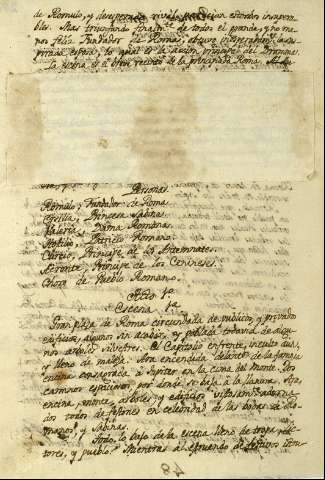 de Romulo, y
bles. Mas triunfando finalm.te de todo el grande, y no me
nos feliz Fundador de Roma, obtuvo
esposa, lo qual es la accion principal del Drama.
La escena es el breve recinto de la principiada Roma.
Personas
Romulo, Fundador de Roma
Ersilia, Princesa Sabina
Valeria, Dama Romana
Hostilio, Patricio Romano
Curcio, Principe de los Antemnates
Acronte, Principe de los Ceninenses
Choro de Pueblo Romano.
Acto 1º
Escena 1ª
Gran plaza de Roma circundada de publicos, y privados
edificios, algunos sin acabar, y poblada todavia de algu
nos arboles silvestres. El Capitolio enfrente, inculto aun,
y lleno de maleza. Ara encendida delante de la famosa
encina consagrada a Jupiter en la cima del monte. Dos
caminos espaciosos, por donde se baja a la llanura. Ara,
encina, monte, arboles, y edificios
dos todos de festones en celebridad de las bodas de Ro
manos, y Sabinas.
Todo lo bajo de la escena lleno de tropa,
tores, y pueblo. Mientras al estruendo de festivos